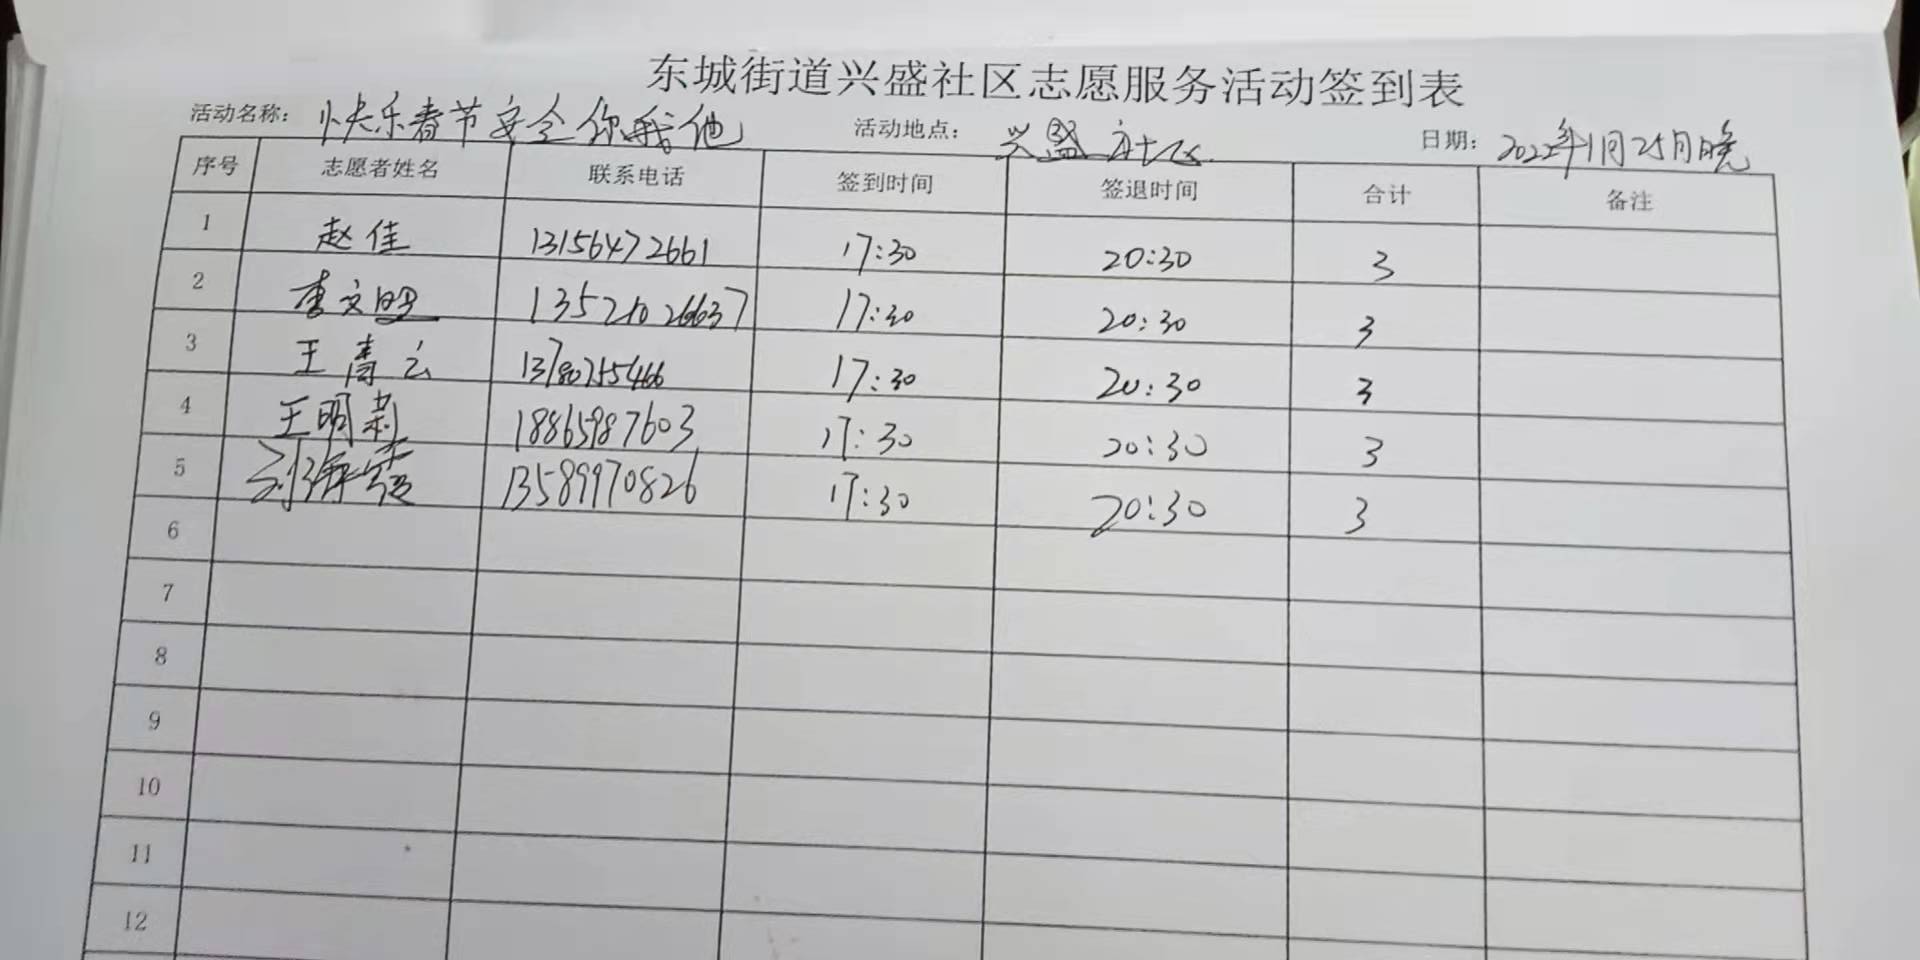 东城街道兴盛社区志愿服务活动签到表
活动名称: 快乐春节安全你我他 活动地点: 兴盛社区 日期: 2022年1月25日晚
序号 志愿者姓名 联系电话 签到时间 签退时间 合计 备注
1 赵佳 13156472661 17:30 20:30 3
2 李文明 13521026637 17:30 20:30 3
3 王青云 13780755466 17:30 20:30 3
4 王明莉 18865987603 17:30 20:30 3
5 13589970826 17:30 20:30 3
6
7
8
9
10
11
12